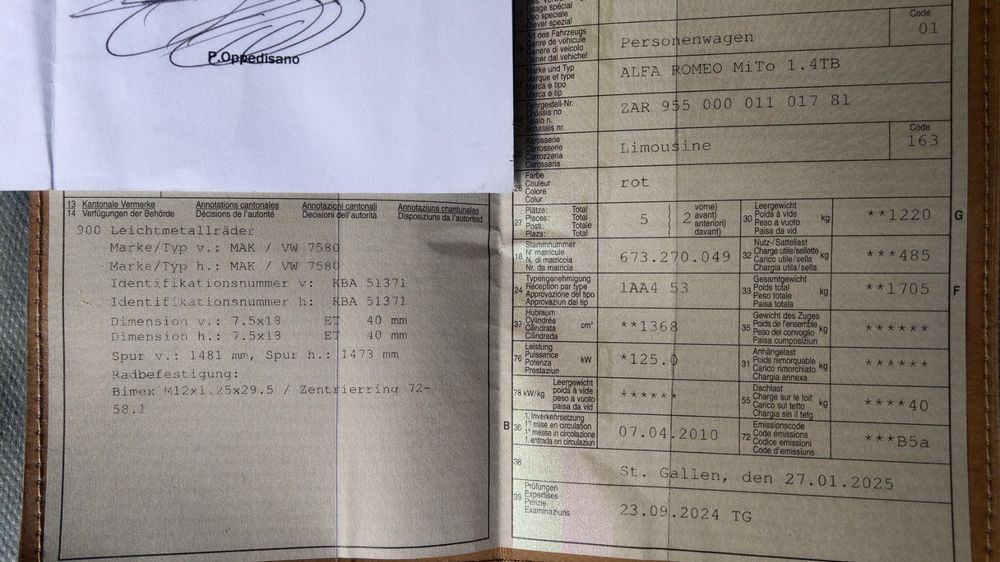 P.Oppedisano
13 Kantonale Vermerke Annotations cantonales Annotazioni cantonali Annotaziuns chantunalas
14 Verfügungen der Behörde Décisions de l'autorité Decisioni dell'autorità Disposiziuns da l'autoritad
900 Leichtmetallräder
Marke/Typ v.: MAK / VW 7580
Marke/Typ h.: MAK / VW 7580
Identifikationsnummer v: KBA 51371
Identifikationsnummer h: KBA 51371
Dimension v.: 7.5x18 ET 40 mm
Dimension h.: 7.5x18 ET 40 mm
Spur v.: 1481 mm, Spur h.: 1473 mm
Radbefestigung:
Bimex M12x1.25x29.5 / Zentrierring 72-
58.1
Usage spécial
Uso speciale
Diever spezial
Art des Fahrzeugs
Genre de véhicule
Genere di veicolo
Gener dal vehichel
Personenwagen
Code
01
Marke und Typ
Marque et type
Marca e tipo
Marca e tip
ALFA ROMEO MiTo 1.4TB
Fahrgestell-Nr.
Châssis no
Telaio n.
Schassis nr.
ZAR 955 000 011 017 81
Karosserie
Carrosserie
Carrozzeria
Carossaria
Limousine
Code
163
26
Farbe
Couleur
Colore
Colur
rot
27
Plätze: Total
Places: Total
Posti: Totale
Plazs: Total
5
2
vorne)
avant)
anteriori)
davant)
30
Leergewicht
Poids à vide
Peso a vuoto
Paisa da vid
kg
**1220
G
18
Stammnummer
N° matricule
N. di matricola
Nr. da matricla
673.270.049
32
Nutz-/Sattellast
Charge utile/sellette
Carico utile/sella
Chargia utila/sella
kg
***485
24
Typengenehmigung
Réception par type
Approvazione del tipo
Approvaziun dal tip
1AA4 53
33
Gesamtgewicht
Poids total
Peso totale
Paisa totala
kg
**1705
F
37
Hubraum
Cylindrée
Cilindrata
Cilindrada
cm³
**1368
35
Gewicht des Zuges
Poids de l'ensemble
Peso del convoglio
Paisa cumposiziun
kg
******
76
Leistung
Puissance
Potenza
Prestaziun
kW
*125.0
31
Anhängelast
Poids remorquable
Carico rimorchiato
Chargia annexa
kg
******
78 kW/kg
Leergewicht
poids à vide
peso a vuoto
paisa da vid
******
55
Dachlast
Charge sur le toit
Carico sul tetto
Chargia sin il tetg
kg
****40
B
36
1. Inverkehrsetzung
1re mise en circulation
1a messa in circolazione
1. entrada en circulaziun
07.04.2010
72
Emissionscode
Code émissions
Codice emissioni
Code d'emissiuns
***B5a
38
St. Gallen, den 27.01.2025
39
Prüfungen
Expertises
Perizie
Examinaziuns
23.09.2024 TG